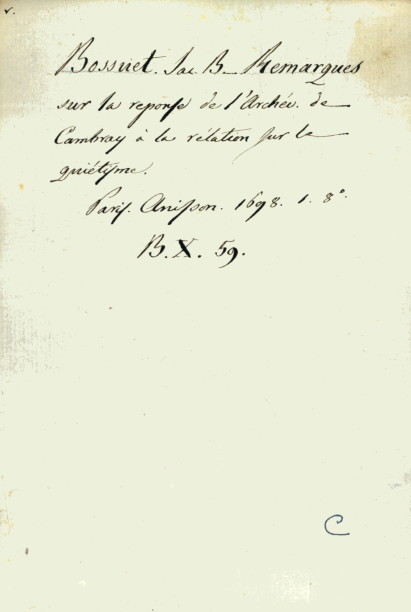 v.
Bossuet. Jac. B— Remarques
sur la reponse de l'Archév. de
Cambray à la rélation sur le
quiétisme.
Paris. Anisson. 1698. 1. 8°.
B. X. 59.
C